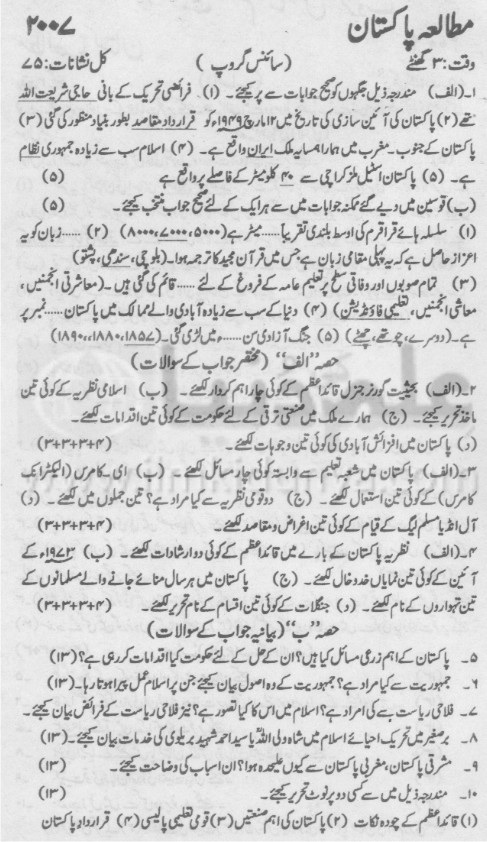 مطالعہ پاکستان ۲۰۰۷
وقت: ۳ گھنٹے (سائنس گروپ) کل نشانات: ۷۵
۱۔ (الف) مندرجہ ذیل جگہوں کو صحیح جوابات سے پر کیجئے۔ (۱) فرائضی تحریک کے بانی حاجی شریعت اللہ
تھے (۲) پاکستان کی آئین سازی کی تاریخ میں ۱۲ مارچ ۱۹۴۹ء کو قرارداد مقاصد بطور بنیاد منظور کی گئی (۳)
پاکستان کے جنوب۔ مغرب میں ہمارا ہمسایہ ملک ایران واقع ہے۔ (۴) اسلام سب سے زیادہ جمہوری نظام
ہے۔ (۵) پاکستان اسٹیل ملز کراچی سے ۴۰ کلومیٹر کے فاصلے پر واقع ہے (۵)
(ب) قوسین میں دیے گئے ممکنہ جوابات میں سے ہر ایک کے لئے صحیح جواب منتخب کیجئے۔ (۵)
(۱) سلسلہ ہائے قراقرم کی اوسط بلندی تقریباً ...... میٹر ہے (۵۰۰۰، ۷۰۰۰، ۸۰۰۰) (۲) ...... زبان کو یہ
اعزاز حاصل ہے کہ یہ پہلی مقامی زبان ہے جس میں قرآن مجید کا ترجمہ ہوا۔ (بلوچی، سندھی، پشتو)
(۳) تمام صوبوں اور وفاقی سطح پر تعلیم عامہ کے فروغ کے لئے ...... قائم کی گئی ہیں۔ (معاشرتی انجمنیں،
معاشی انجمنیں، تعلیمی فاؤنڈیشن) (۴) دنیا کے سب سے زیادہ آبادی والے ممالک میں پاکستان ...... نمبر پر
ہے۔ (دوسرے، چوتھے، چھٹے) (۵) جنگ آزادی سن ...... ء میں لڑی گئی۔ (۱۸۵۷، ۱۸۸۰، ۱۸۹۰)
حصہ "الف" (مختصر جواب کے سوالات)
۲۔ (الف) بحیثیت گورنر جنرل قائداعظم کے کوئی چار اہم کردار لکھئے۔ (ب) اسلامی نظریہ کے کوئی تین
ماخذ تحریر کیجئے۔ (ج) ہمارے ملک میں صنعتی ترقی کے لئے حکومت کے کوئی تین اقدامات لکھئے۔
(د) پاکستان میں افزائش آبادی کی کوئی تین وجوہات لکھئے۔ (۳+۳+۳+۴)
۳۔ (الف) پاکستان میں شعبہ تعلیم سے وابستہ کوئی چار مسائل لکھئے۔ (ب) ای۔ کامرس (الیکٹرانک
کامرس) کے کوئی تین استعمال لکھئے۔ (ج) دو قومی نظریہ سے کیا مراد ہے؟ تین جملوں میں لکھئے۔ (د)
آل انڈیا مسلم لیگ کے قیام کے کوئی تین اغراض و مقاصد لکھئے۔ (۳+۳+۳+۴)
۴۔ (الف) نظریہ پاکستان کے بارے میں قائداعظم کے کوئی دو ارشادات لکھئے۔ (ب) ۱۹۷۳ء کے
آئین کے کوئی تین نمایاں خدوخال لکھئے۔ (ج) پاکستان میں ہر سال منائے جانے والے مسلمانوں کے
تین تہواروں کے نام لکھئے۔ (د) جنگلات کے کوئی تین اقسام کے نام تحریر کیجئے۔ (۳+۳+۳+۴)
حصہ "ب" (بیانیہ جواب کے سوالات)
۵۔ پاکستان کے اہم زرعی مسائل کیا ہیں؟ ان کے حل کے لئے حکومت کیا اقدامات کر رہی ہے؟ (۱۳)
۶۔ جمہوریت سے کیا مراد ہے؟ جمہوریت کے وہ اصول بیان کیجئے جن پر اسلام عمل پیرا ہوتا رہا۔ (۱۳)
۷۔ فلاحی ریاست سے کی امراد ہے؟ اسلام میں اس کا کیا تصور ہے؟ نیز فلاحی ریاست کے فرائض بیان کیجئے۔
۸۔ برصغیر میں تحریک احیائے اسلام میں شاہ ولی اللہ یا سید احمد شہید بریلوی کی خدمات بیان کیجئے۔ (۱۳)
۹۔ مشرقی پاکستان، مغربی پاکستان سے کیوں علیحدہ ہوا؟ ان اسباب کی وضاحت کیجئے۔ (۱۳)
۱۰۔ مندرجہ ذیل میں سے کسی دو پر نوٹ تحریر کیجئے۔ (۱۳)
(۱) قائداعظم کے چودہ نکات (۲) پاکستان کی اہم صنعتیں (۳) قومی تعلیمی پالیسی (۴) قرارداد پاکستان